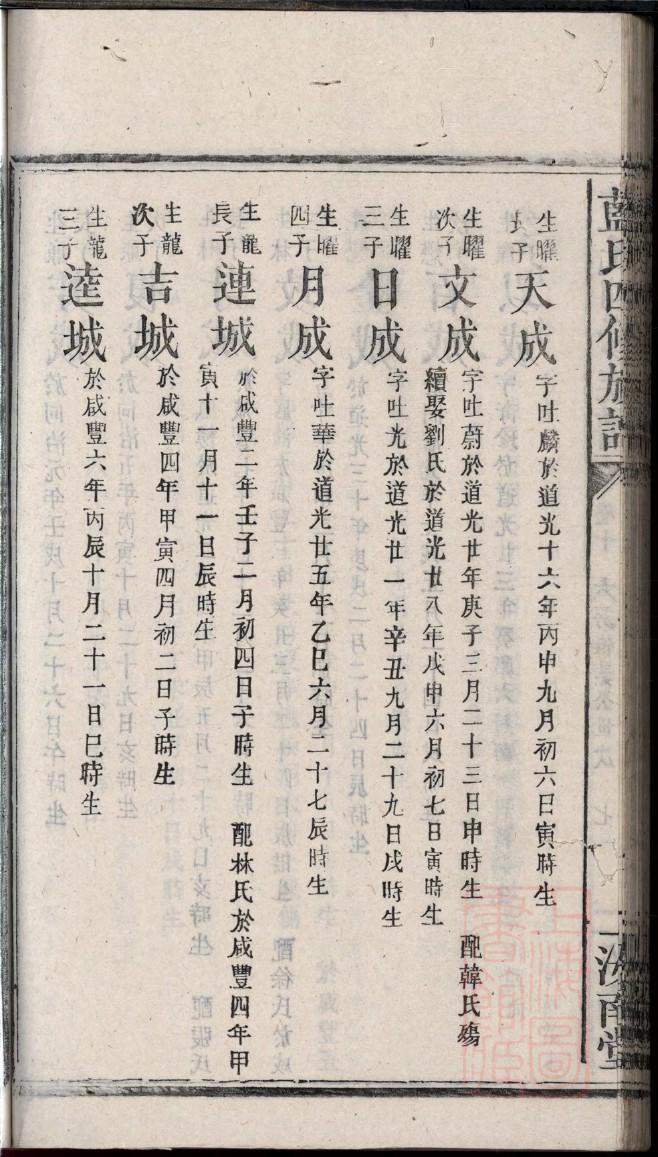 藍氏四修族譜
汝南堂
生曜長子 天成 字吐麟於道光十六年丙申九月初六日寅時生
生曜次子 文成 字吐蔚於道光廿年庚子三月二十三日申時生 配韓氏殤
續娶劉氏於道光廿八年戊申六月初七日寅時生
生曜三子 日成 字吐光於道光廿一年辛丑九月二十九日戌時生
生曜四子 月成 字吐華於道光廿五年乙巳六月二十七辰時生
生龍長子 連城 於咸豐二年壬子二月初四日子時生 配林氏於咸豐四年甲
寅十一月十一日辰時生
生龍次子 吉城 於咸豐四年甲寅四月初二日子時生
生龍三子 逵城 於咸豐六年丙辰十月二十一日巳時生